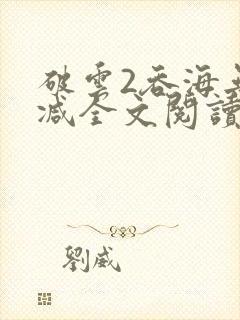 破雲2吞海無
减全文閱讀
劉威